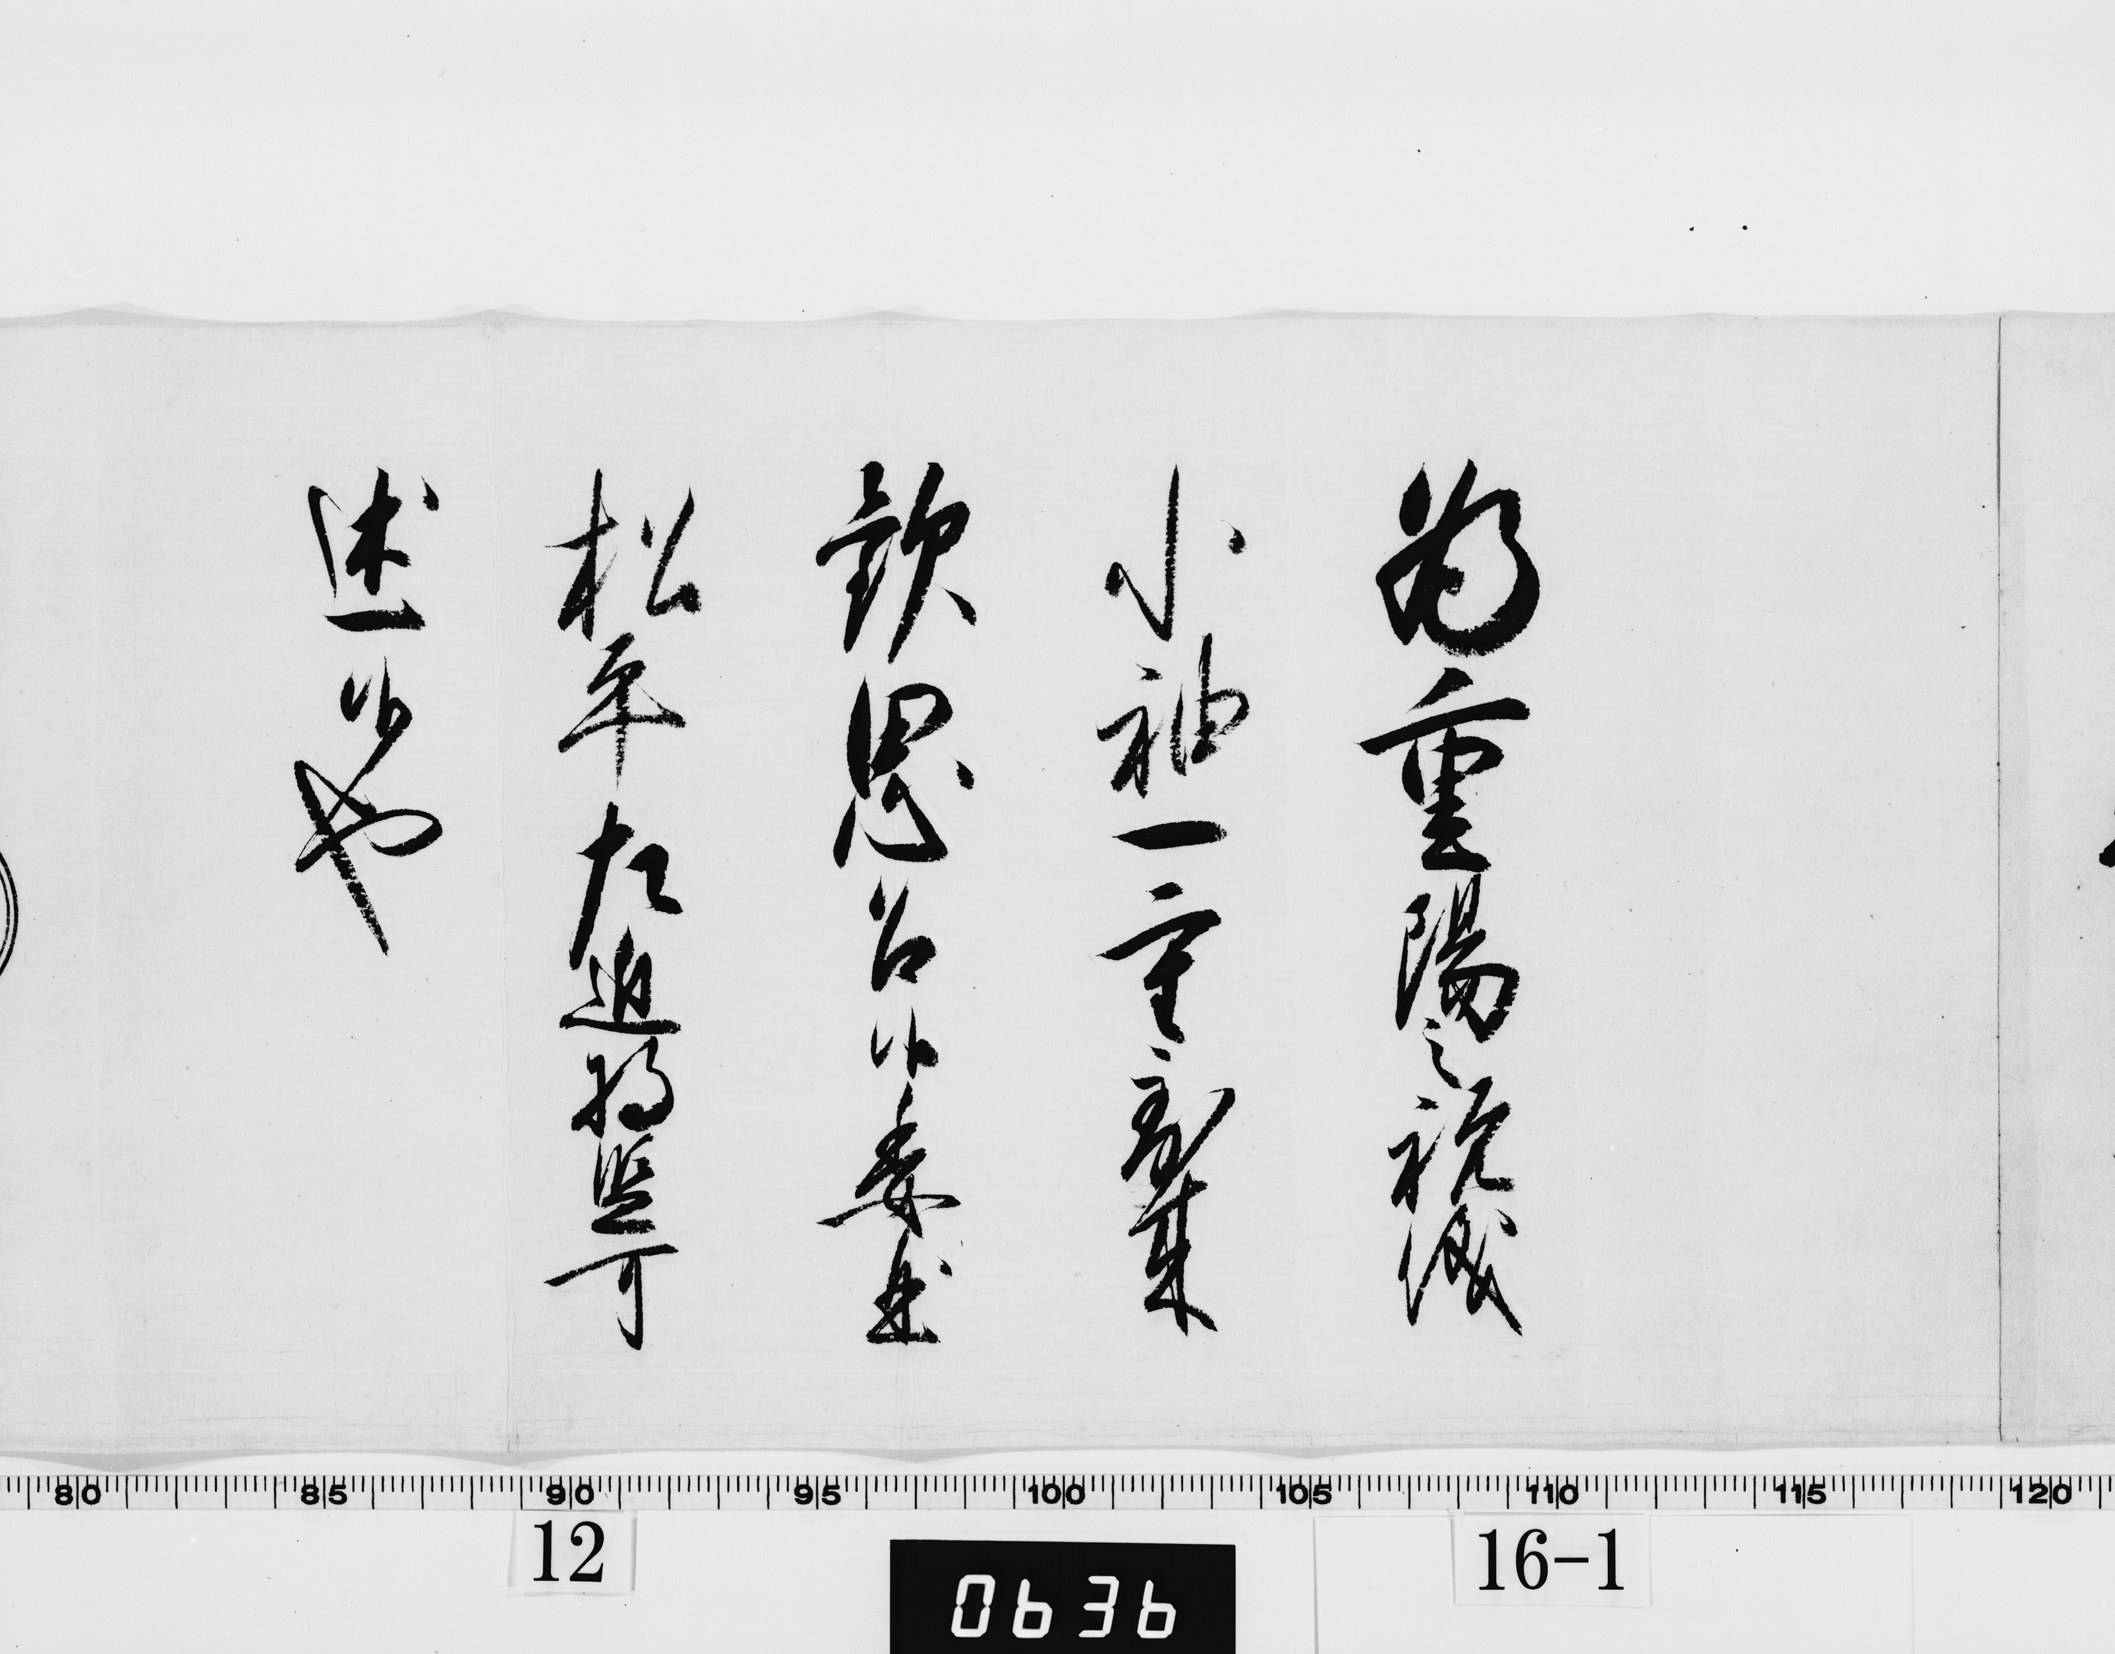 為重陽之祝儀
小袖一重到来
歓思召候委曲
松平左近将監可
述候也
80 85 90 95 100 105 110 115 120
12
16-1
0636